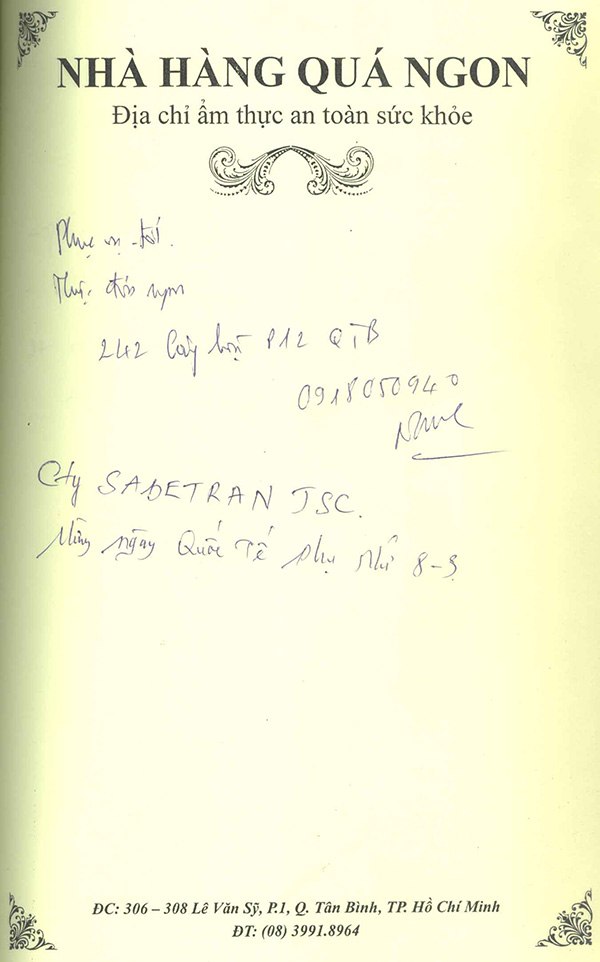 NHÀ HÀNG QUÁ NGON
Địa chỉ ẩm thực an toàn sức khỏe
Phục vụ tốt.
Thức đơn ngon
242 P12 QTB
0918050940
Cty SADETRAN JSC.
Mừng ngày Quốc Tế Phụ Nữ 8-3
ĐC: 306 – 308 Lê Văn Sỹ, P.1, Q. Tân Bình, TP. Hồ Chí Minh
ĐT: (08) 3991.8964